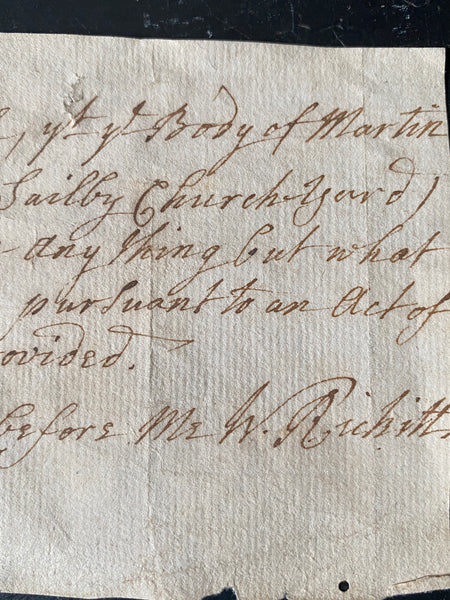 , yt ye Body of Martin
Sailby Church-Yard)
any thing but what
pursuant to an Act of
ovided.
before Me W. Rickitts